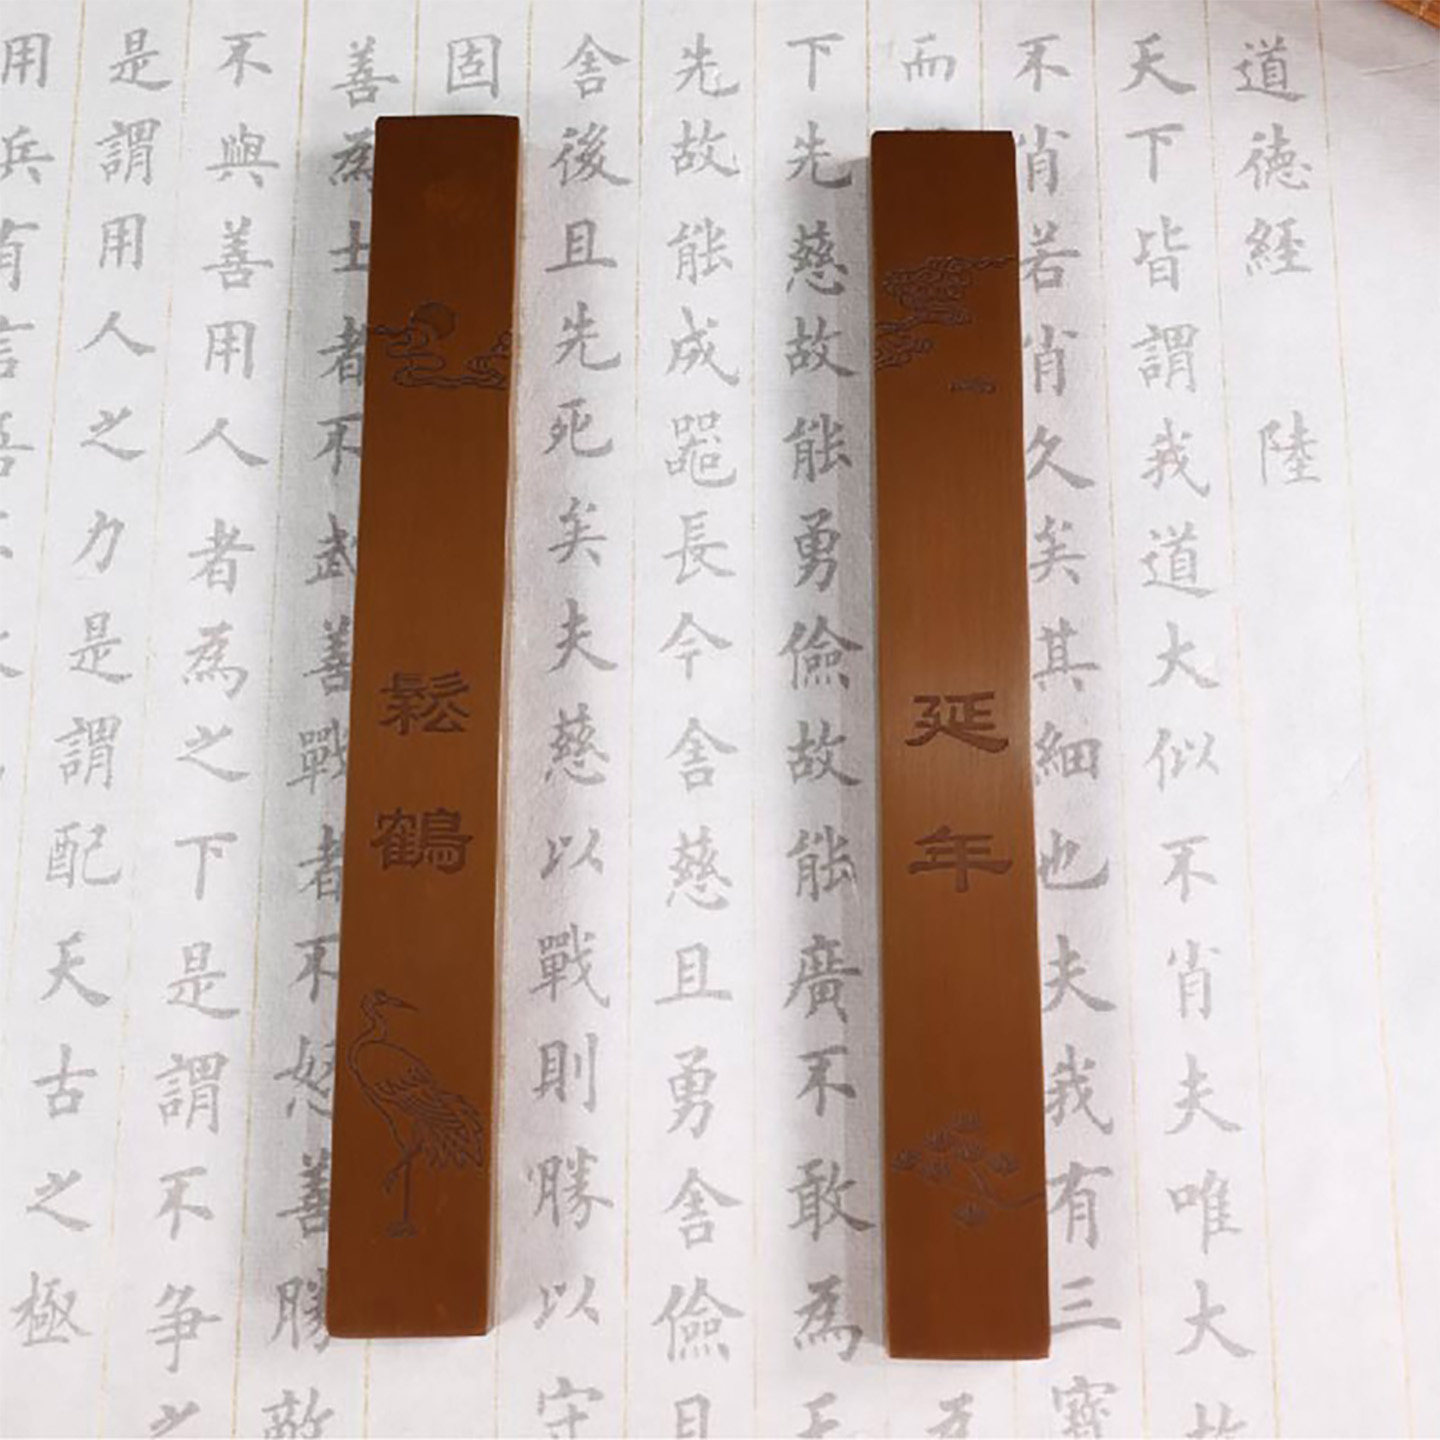 道德經 陸
天下皆謂我道大似不肖夫唯大故
不肖若肖久矣其細也夫我有三寶
而
下先慈故能勇儉故能廣不敢為天
先故能成器長今舍慈且勇舍儉且
舍後且先死矣夫慈以戰則勝以守
固
善為士者不武善戰者不怒善勝敵
不與善用人者為之下是謂不爭之
是謂用人之力是謂配天古之極
用兵有言
鬆鶴
延年